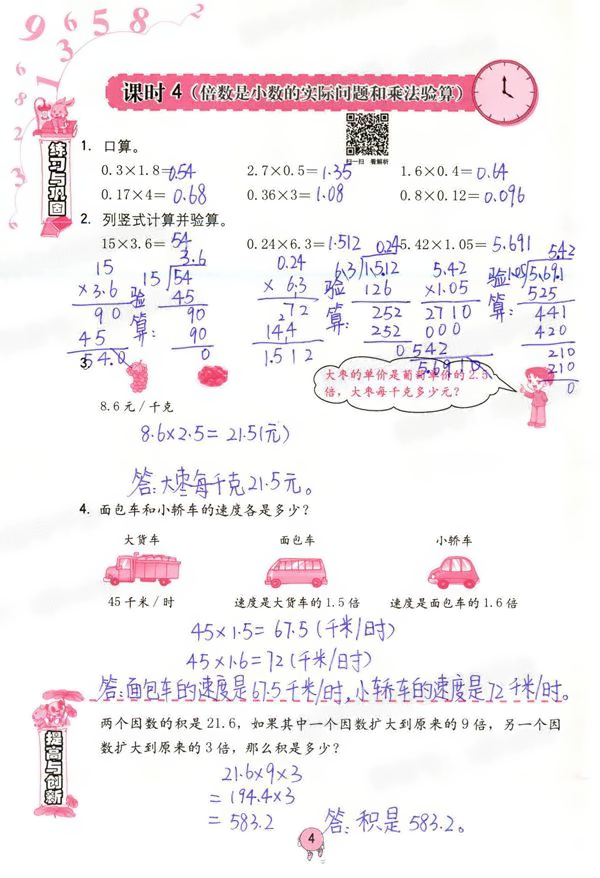 9 6 5 8 2
课时 4（倍数是小数的实际问题和乘法验算）
扫一扫 看解析
练习与巩固
1. 口算。
0.3×1.8=0.54 2.7×0.5=1.35 1.6×0.4=0.64
0.17×4=0.68 0.36×3=1.08 0.8×0.12=0.096
2. 列竖式计算并验算。
15×3.6=54 0.24×6.3=1.512 5.42×1.05=5.691
15
×3.6
90
45
54.0
验算:
3.6
15 54
45
90
90
0
0.24
×6.3
72
144
1.512
验算:
0.24
6.3 1.512
126
252
252
0
5.42
×1.05
2710
000
542
5.6910
验算:
5.42
1.05 5.691
525
441
420
210
210
0
3.
大枣的单价是葡萄单价的2.5
倍，大枣每千克多少元？
8.6元/千克
8.6×2.5=21.5(元)
答:大枣每千克21.5元。
4. 面包车和小轿车的速度各是多少？
大货车 面包车 小轿车
45千米/时 速度是大货车的1.5倍 速度是面包车的1.6倍
45×1.5=67.5(千米/时)
45×1.6=72(千米/时)
答:面包车的速度是67.5千米/时,小轿车的速度是72千米/时。
提高与创新
两个因数的积是21.6，如果其中一个因数扩大到原来的9倍，另一个因
数扩大到原来的3倍，那么积是多少？
21.6×9×3
=194.4×3
=583.2
答:积是583.2。
4